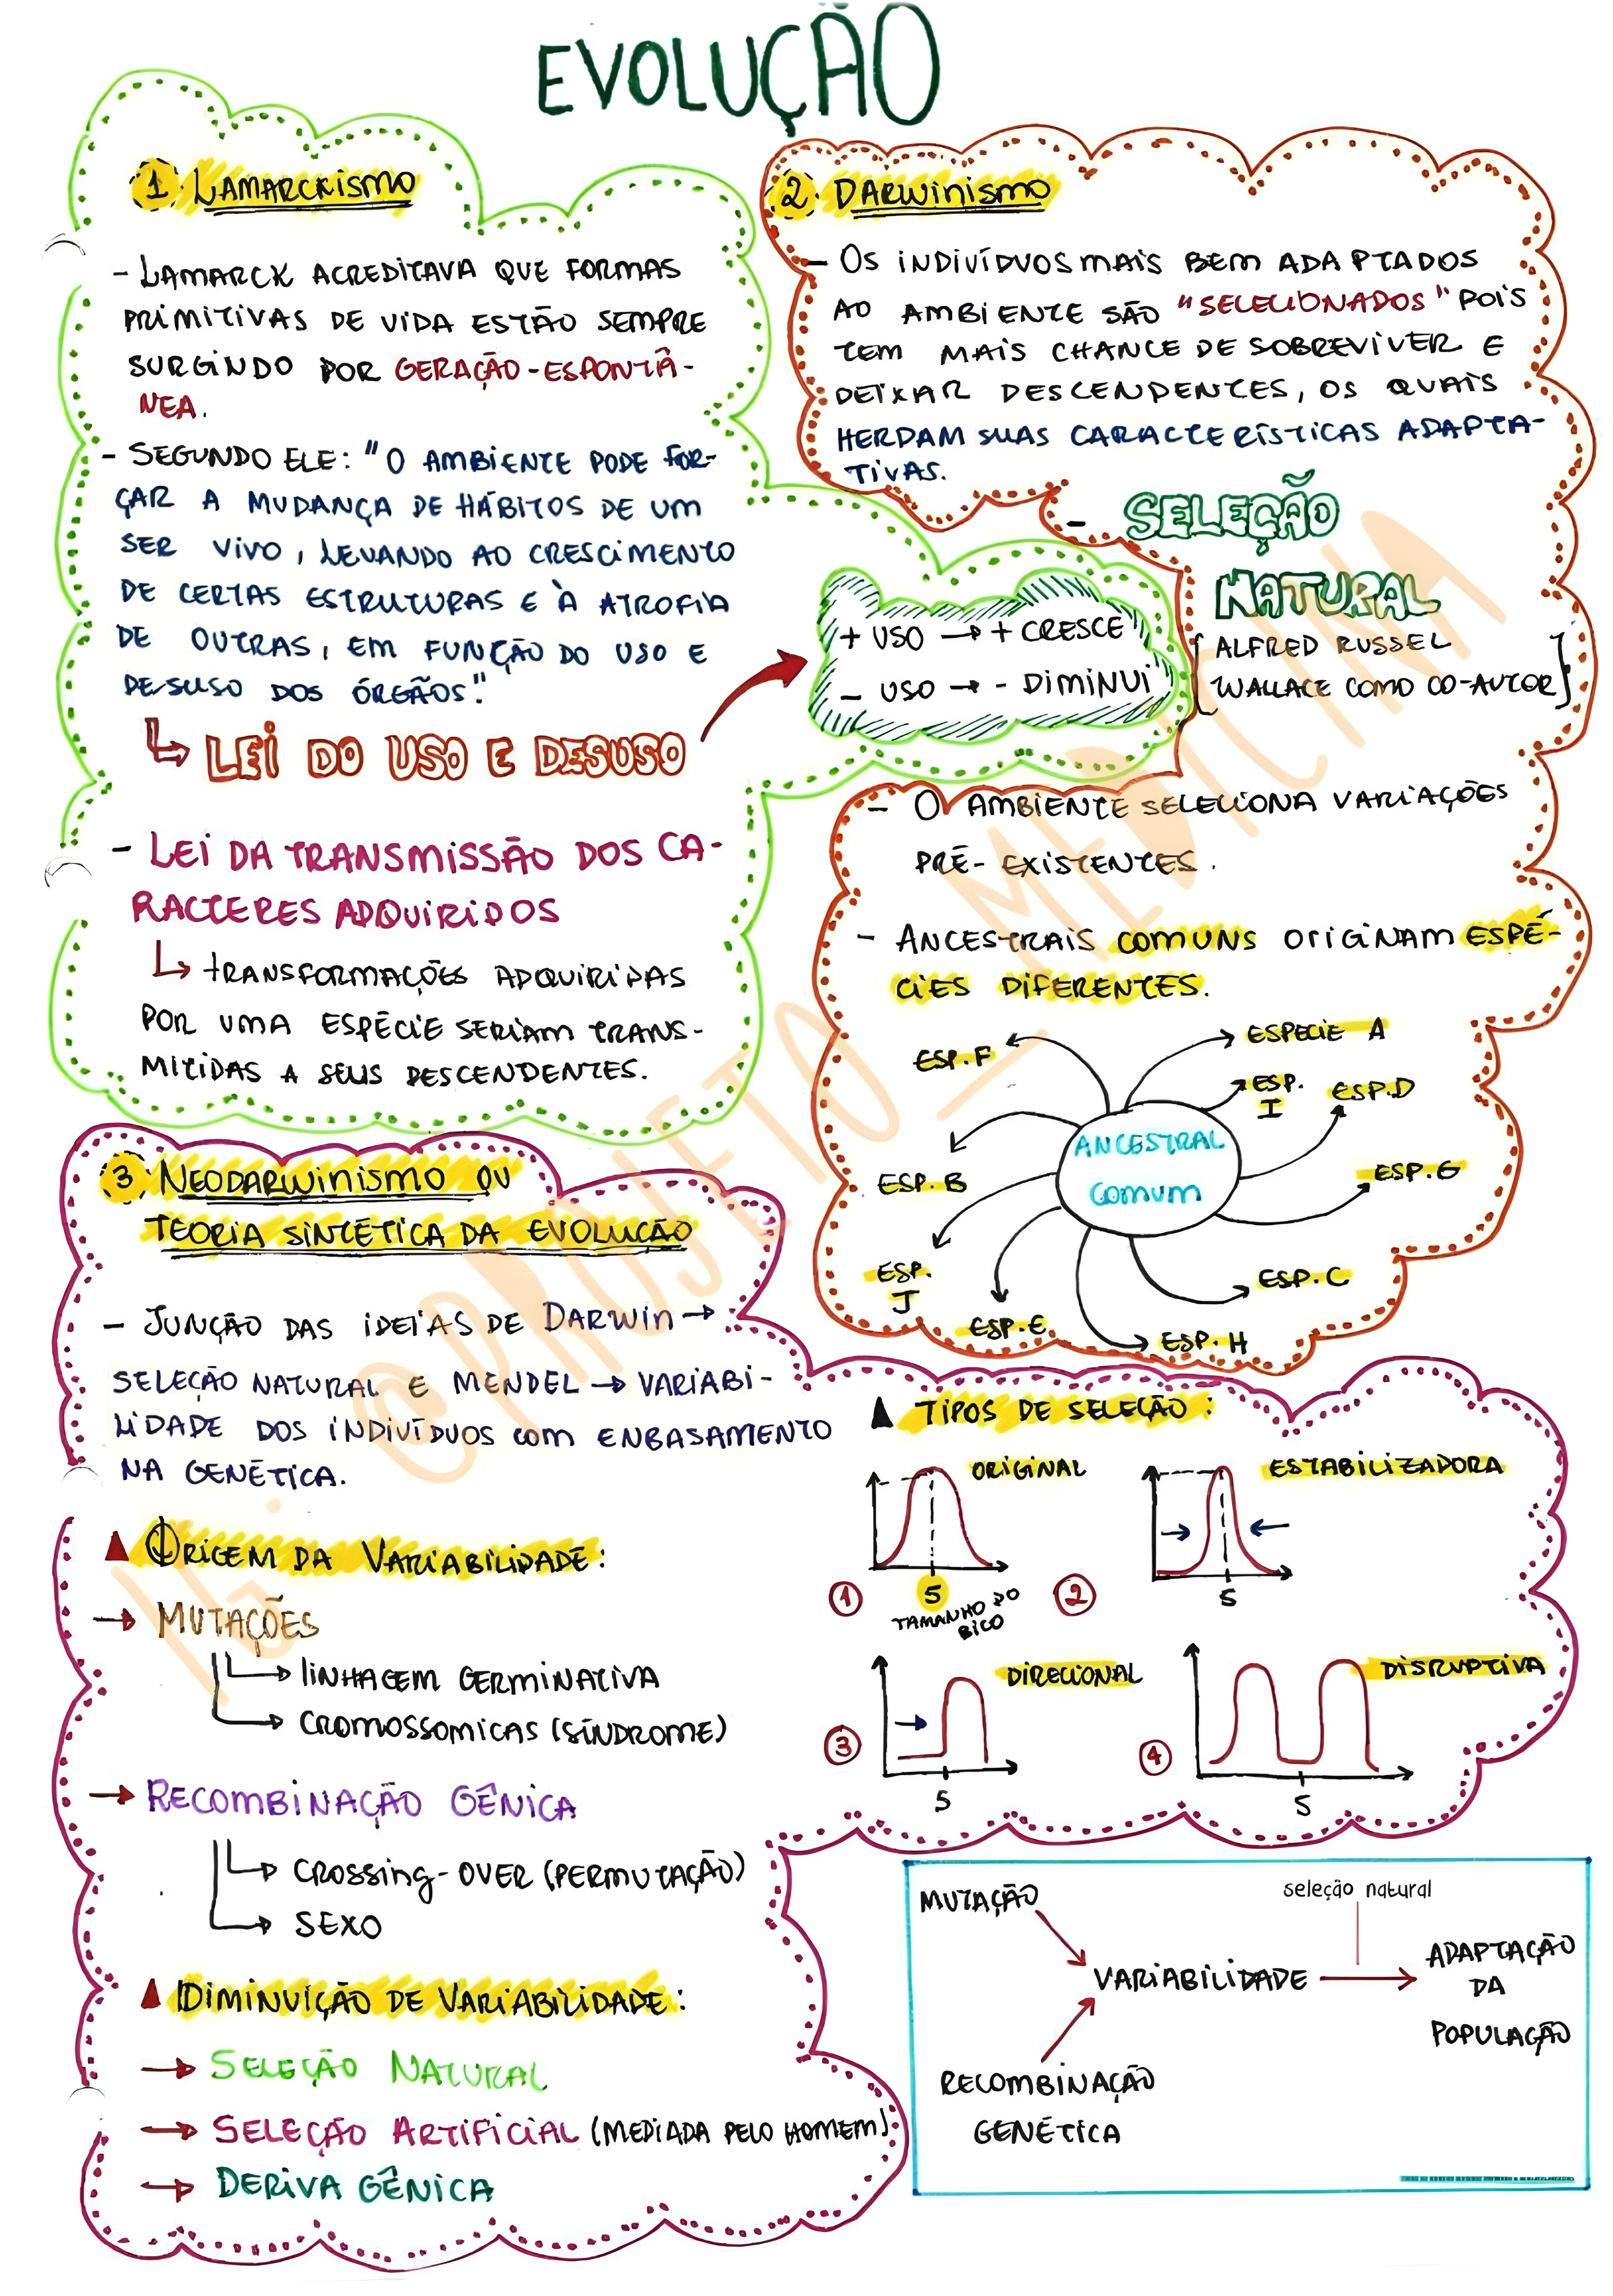 EVOLUÇÃO
1 LAMARCKISMO
- LAMARCK ACREDITAVA QUE FORMAS
PRIMITIVAS DE VIDA ESTÃO SEMPRE
SURGINDO POR GERAÇÃO-ESPONTÂ-
NEA.
- SEGUNDO ELE: "O AMBIENTE PODE FOR-
ÇAR A MUDANÇA DE HÁBITOS DE UM
SER VIVO, LEVANDO AO CRESCIMENTO
DE CERTAS ESTRUTURAS E À ATROFIA
DE OUTRAS, EM FUNÇÃO DO USO E
DESUSO DOS ÓRGÃOS."
LEI DO USO E DESUSO
+ USO → + CRESCE
- USO → - DIMINUI
- LEI DA TRANSMISSÃO DOS CA-
RACTERES ADQUIRIDOS
TRANSFORMAÇÕES ADQUIRIDAS
POR UMA ESPÉCIE SERIAM TRANS-
MITIDAS A SEUS DESCENDENTES.
2. DARWINISMO
- OS INDIVÍDUOS MAIS BEM ADAPTADOS
AO AMBIENTE SÃO "SELECIONADOS" POIS
TEM MAIS CHANCE DE SOBREVIVER E
DEIXAR DESCENDENTES, OS QUAIS
HERDAM SUAS CARACTERÍSTICAS ADAPTA-
TIVAS.
- SELEÇÃO
NATURAL
[ALFRED RUSSEL
WALLACE COMO CO-AUTOR]
- O AMBIENTE SELECIONA VARIAÇÕES
PRÉ-EXISTENTES.
- ANCESTRAIS COMUNS ORIGINAM ESPÉ-
CIES DIFERENTES.
ESP. F
ESPECIE A
ESP.
I
ESP. D
ANCESTRAL
COMUM
ESP. B
ESP. G
ESP.
J
ESP. C
ESP. E
ESP. H
3 NEODARWINISMO OU
TEORIA SINTÉTICA DA EVOLUCÃO
- JUNÇÃO DAS IDEIAS DE DARWIN →
SELEÇÃO NATURAL E MENDEL → VARIABI-
LIDADE DOS INDIVÍDUOS COM ENBASAMENTO
NA GENÉTICA.
ORIGEM DA VARIABILIDADE:
→ MUTAÇÕES
→ LINHAGEM GERMINATIVA
→ CROMOSSOMICAS (SÍNDROME)
→ RECOMBINAÇÃO GÊNICA
→ CROSSING-OVER (PERMUTAÇÃO)
→ SEXO
DIMINUIÇÃO DE VARIABILIDADE:
→ SELEÇÃO NATURAL
→ SELEÇÃO ARTIFICIAL (MEDIADA PELO HOMEM)
→ DERIVA GÊNICA
TIPOS DE SELEÇÃO:
ORIGINAL
1
5
TAMANHO DO
BICO
ESTABILIZADORA
2
5
DIRECIONAL
3
5
DISRUPTIVA
4
5
MUTAÇÃO
seleção natural
VARIABILIDADE
ADAPTAÇÃO
DA
POPULAÇÃO
RECOMBINAÇÃO
GENÉTICA
IG: @PROJETO_MEDICINA